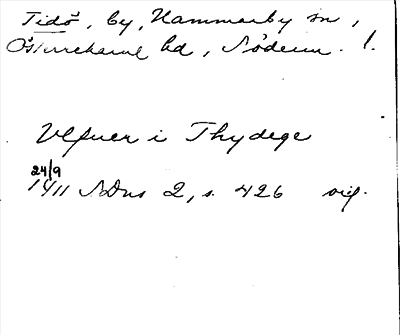 Tidö, by, Hammarby sn,
Österrekarne hd, Söderm. l.
Vlfuer i Thydege
24/9
1411 SDns 2, s. 426 sig.